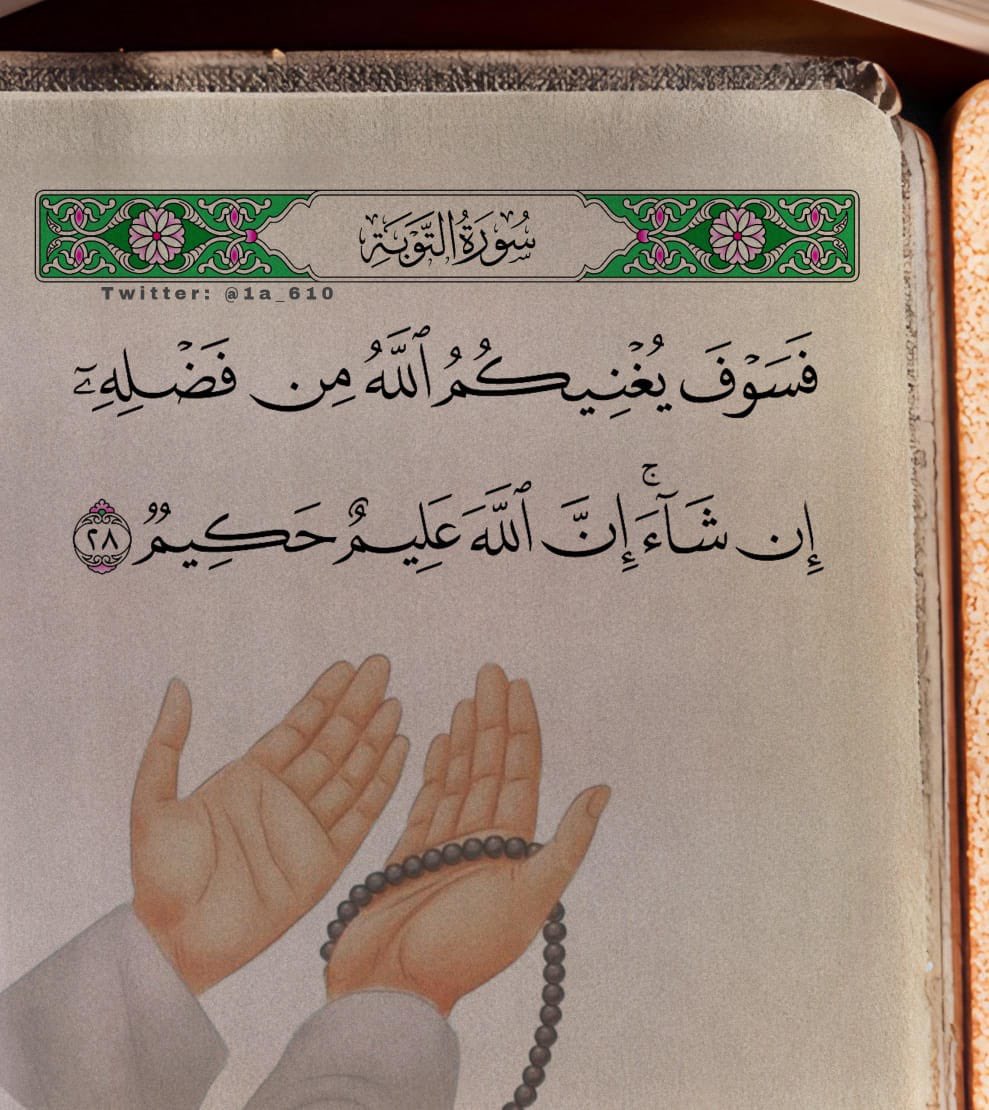 سُورَةُ التَّوْبَةِ
Twitter: @1a_610
فَسَوْفَ يُغْنِيكُمُ ٱللَّهُ مِن فَضْلِهِۦٓ
إِن شَآءَ ۚ إِنَّ ٱللَّهَ عَلِيمٌ حَكِيمٌ ٢٨